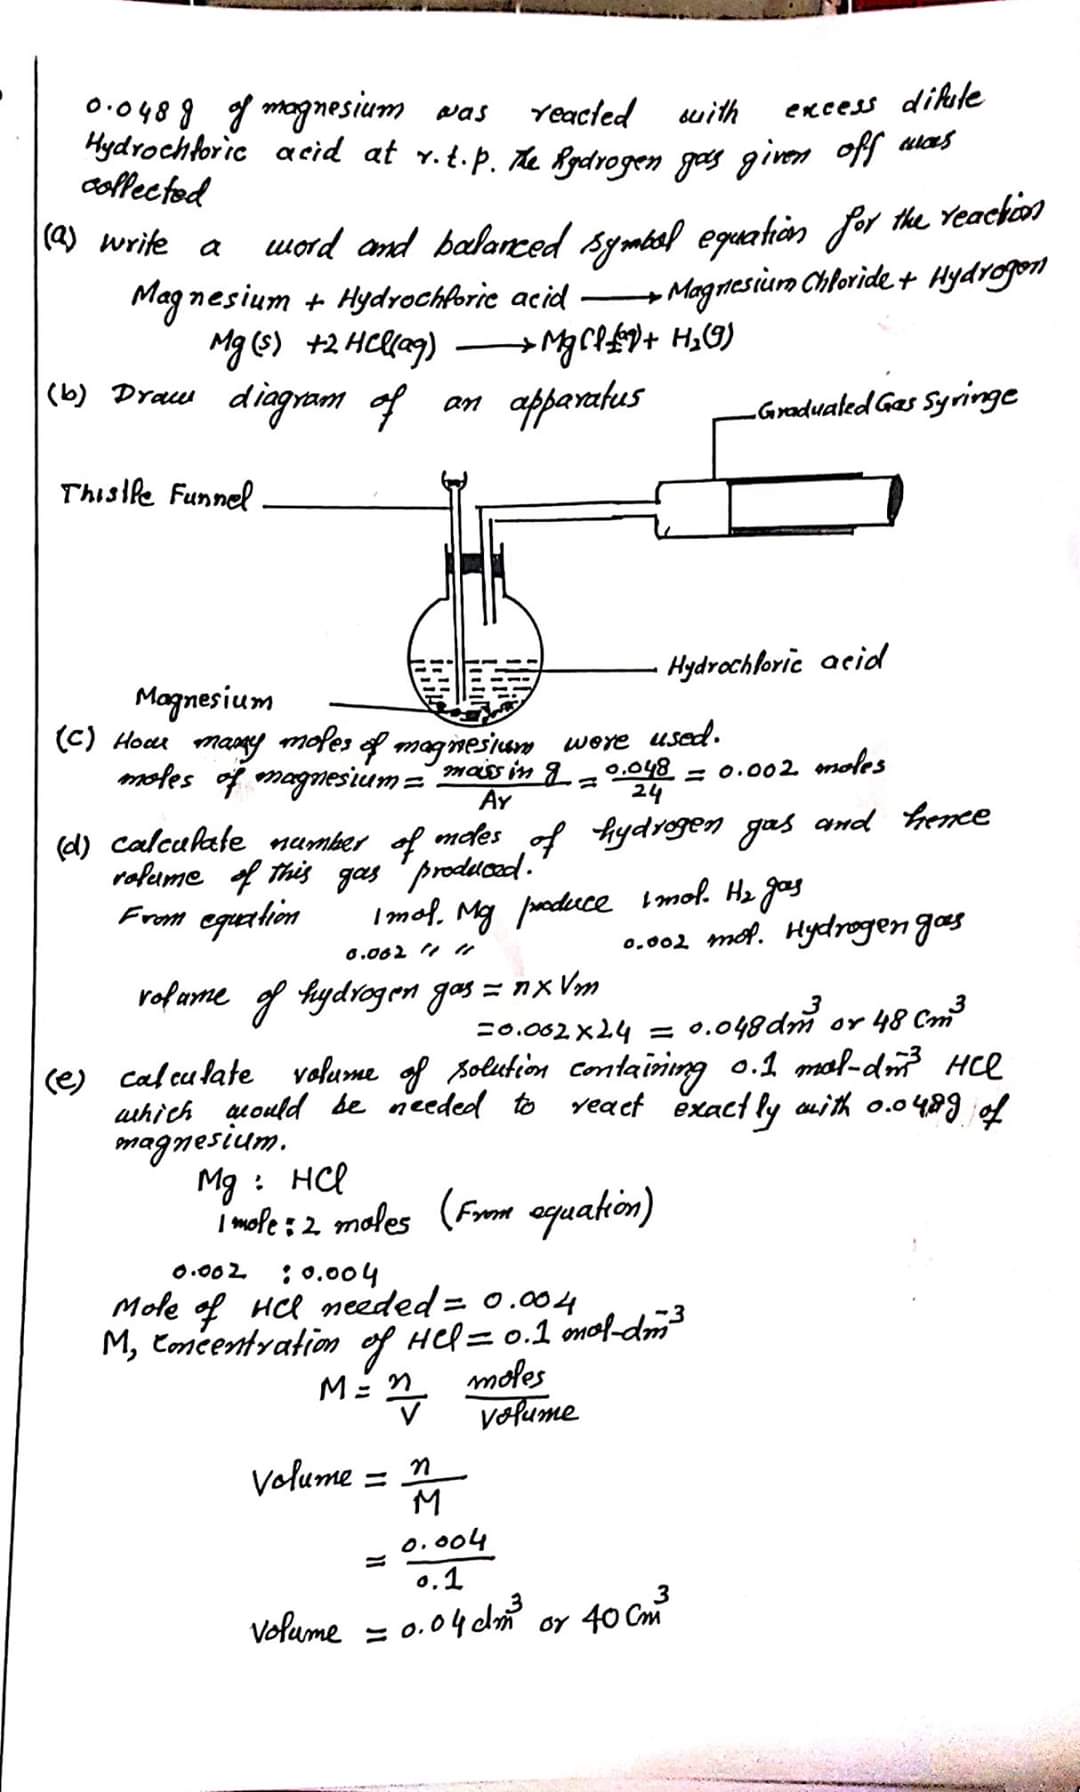 0.048g of magnesium was reacted with excess dilute
Hydrochloric acid at r.t.p. The hydrogen gas given off was
collected
(a) write a word and balanced symbol equation for the reaction
Magnesium + Hydrochloric acid ⟶ Magnesium Chloride + Hydrogen
Mg(s) +2HCl(aq) ⟶ MgCl₂(aq) + H₂(g)
(b) Draw diagram of an apparatus
Graduated Gas Syringe
Thistle Funnel
Hydrochloric acid
Magnesium
(c) How many moles of magnesium were used.
moles of magnesium = mass in g / Ar = 0.048 / 24 = 0.002 moles
(d) calculate number of moles of hydrogen gas and hence
volume of this gas produced.
From equation 1 mol. Mg produce 1 mol. H₂ gas
0.002 " " 0.002 mol. Hydrogen gas
volume of hydrogen gas = n x Vm
=0.002x24 = 0.048dm³ or 48 Cm³
(e) calculate volume of solution containing 0.1 mol-dm⁻³ HCl
which would be needed to react exactly with 0.048g of
magnesium.
Mg : HCl
1 mole : 2 moles (From equation)
0.002 : 0.004
Mole of HCl needed = 0.004
M, Concentration of HCl = 0.1 mol-dm⁻³
M = n / V moles / volume
Volume = n / M
= 0.004 / 0.1
Volume = 0.04 dm³ or 40 Cm³